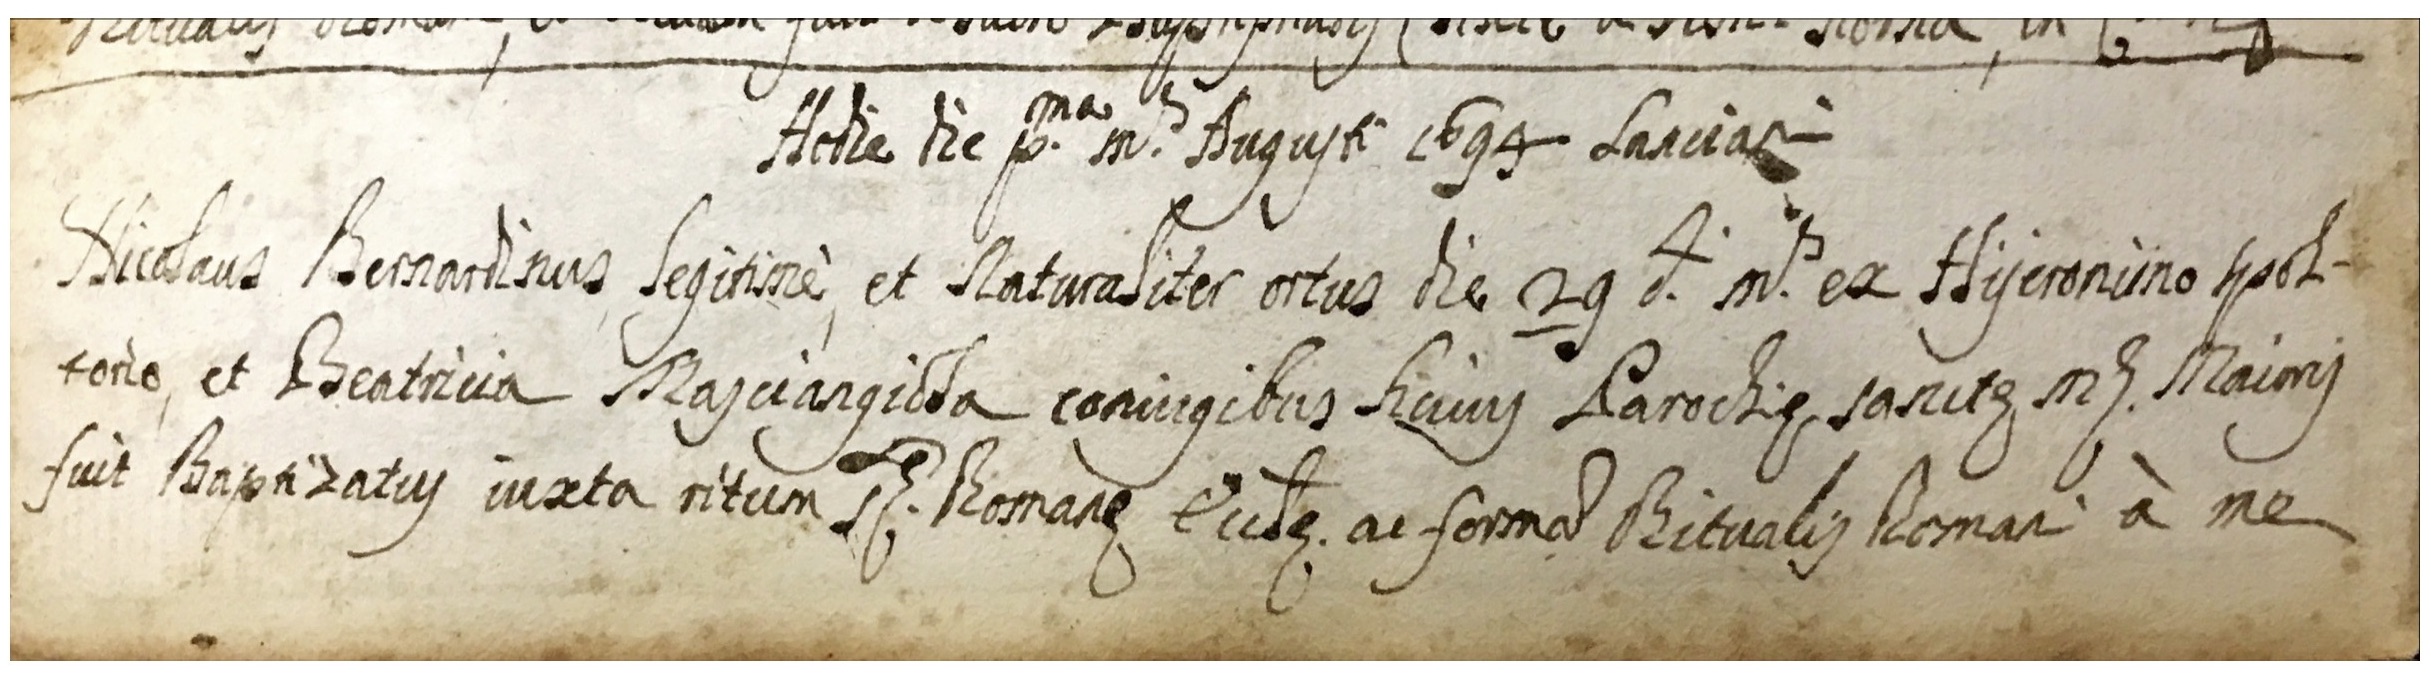 Ritualis Romani, et
Hodie die p.ma m.s Augusti 1694 Lanciani
Nicolaus Bernardinus, legitimè, et Naturaliter ortus die 29 d.i m.s ex Hijeronimo spol-
torio, et Beatricia Masciangiola coniugibus huius Parochię sanctę M.ę Maioris
fuit Baptizatus iuxta ritum S.ę Romanę Eccl.ę ac formã Ritualis Romani à me